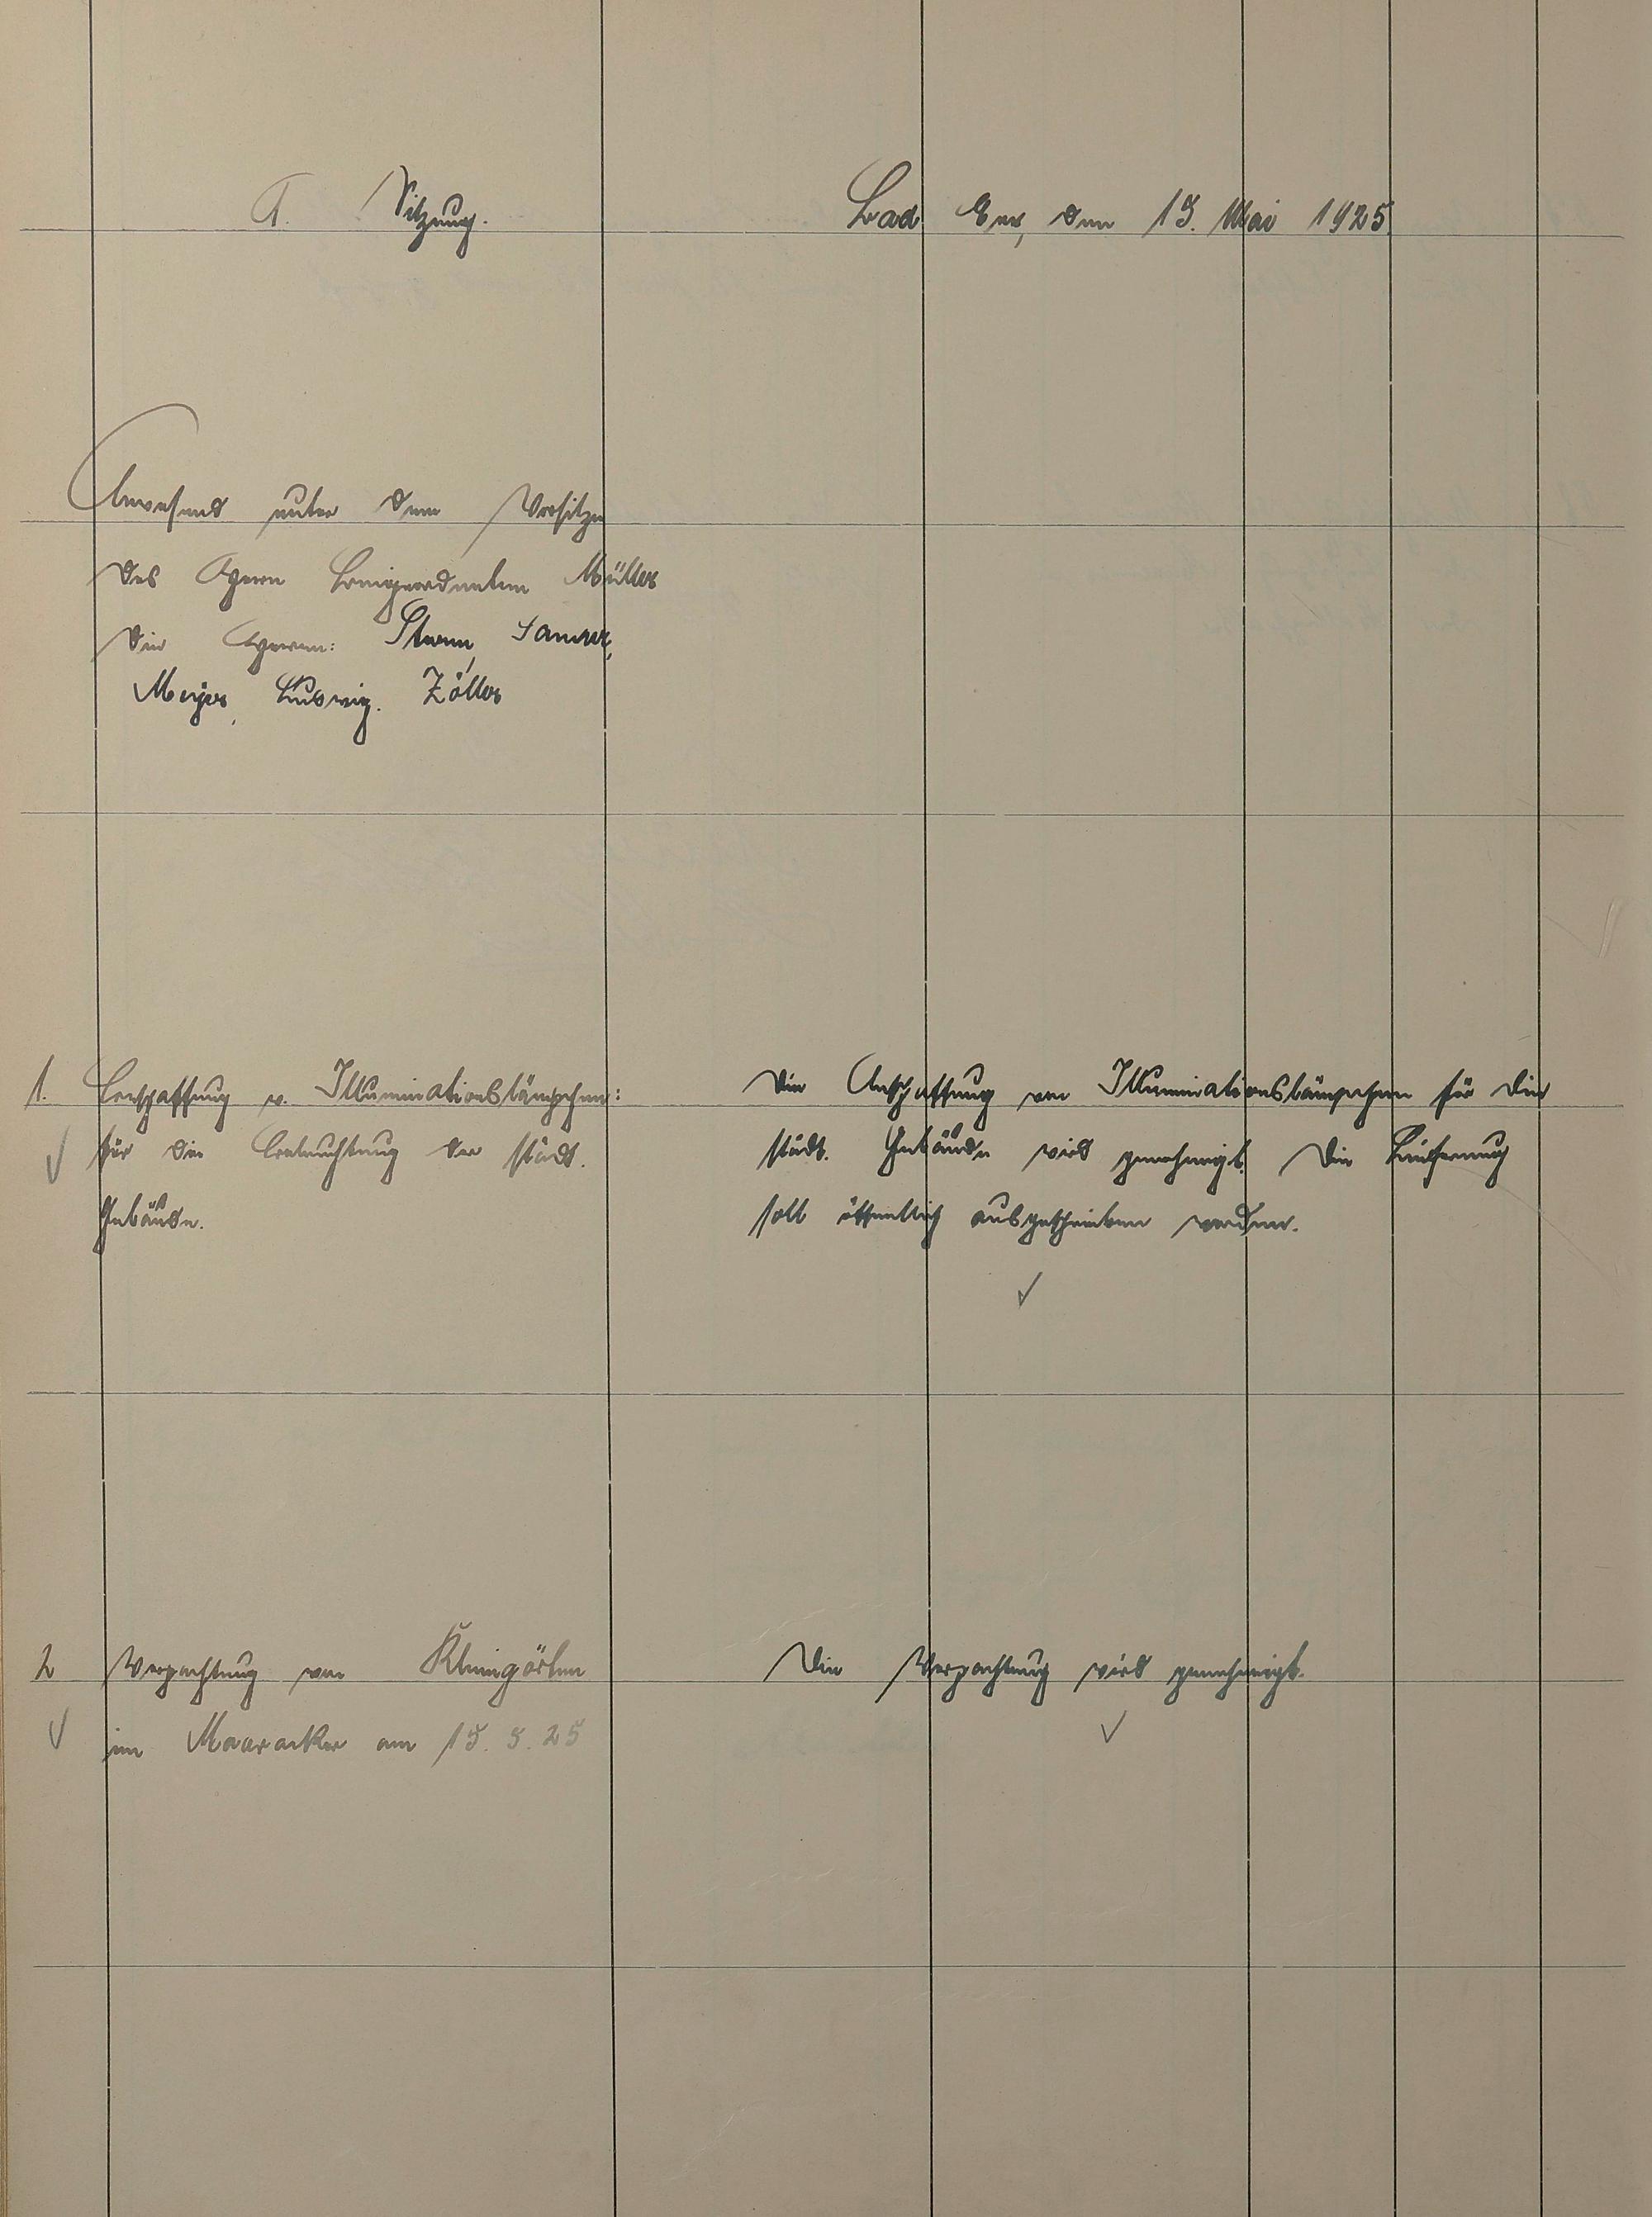 Sitzung.
Bad Ems, den 15. Mai 1925.
Anwesend unter dem Vorsitze
des Herrn Beigeordneten Müller
die Herren: Sanner,
Meyer, Ludwig. Zöller
1. Beschaffung v. Illuminationslämpchen:
für die Beleuchtung der städt.
Gebäude.
Die Anschaffung von Illuminationslämpchen für die
städt. Gebäude wird genehmigt. Die Lieferung
soll öffentlich ausgeschrieben werden.
2 Verpachtung von Kleingärten
im am 15.5.25
Die Verpachtung wird genehmigt.